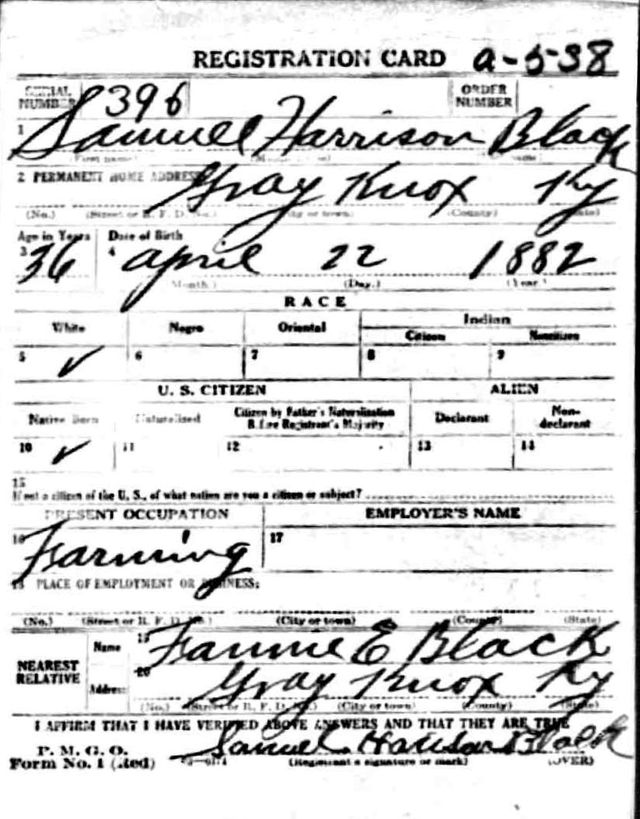 REGISTRATION CARD a-5-38
SERIAL NUMBER 396 ORDER NUMBER
1 Samuel Harrison Black
(First name) (Middle name) (Last name)
2 PERMANENT HOME ADDRESS: Gray Knox Ky
(No.) (Street or R. F. D. No.) (City or town) (County) (State)
Age in Years Date of Birth
3 36 4 april 22 1882
(Month.) (Day.) (Year.)
RACE
White Negro Oriental Indian
Citizen Noncitizen
5 ✓ 6 7 8 9
U. S. CITIZEN ALIEN
Native Born Naturalized Citizen by Father's Naturalization Before Registrant's Majority Declarant Non-declarant
10 ✓ 11 12 13 14
15
If not a citizen of the U. S., of what nation are you a citizen or subject?
PRESENT OCCUPATION EMPLOYER'S NAME
16 Farming 17
18 PLACE OF EMPLOYMENT OR BUSINESS:
(No.) (Street or R. F. D. No.) (City or town) (County) (State)
NEAREST RELATIVE Name 19 Fannie E Black
Address 20 Gray Knox Ky
(No.) (Street or R. F. D. No.) (City or town) (County) (State)
I AFFIRM THAT I HAVE VERIFIED ABOVE ANSWERS AND THAT THEY ARE TRUE
P. M. G. O.
Form No. 1 (Red) Samuel Harrison Black
(Registrant's signature or mark) (OVER)